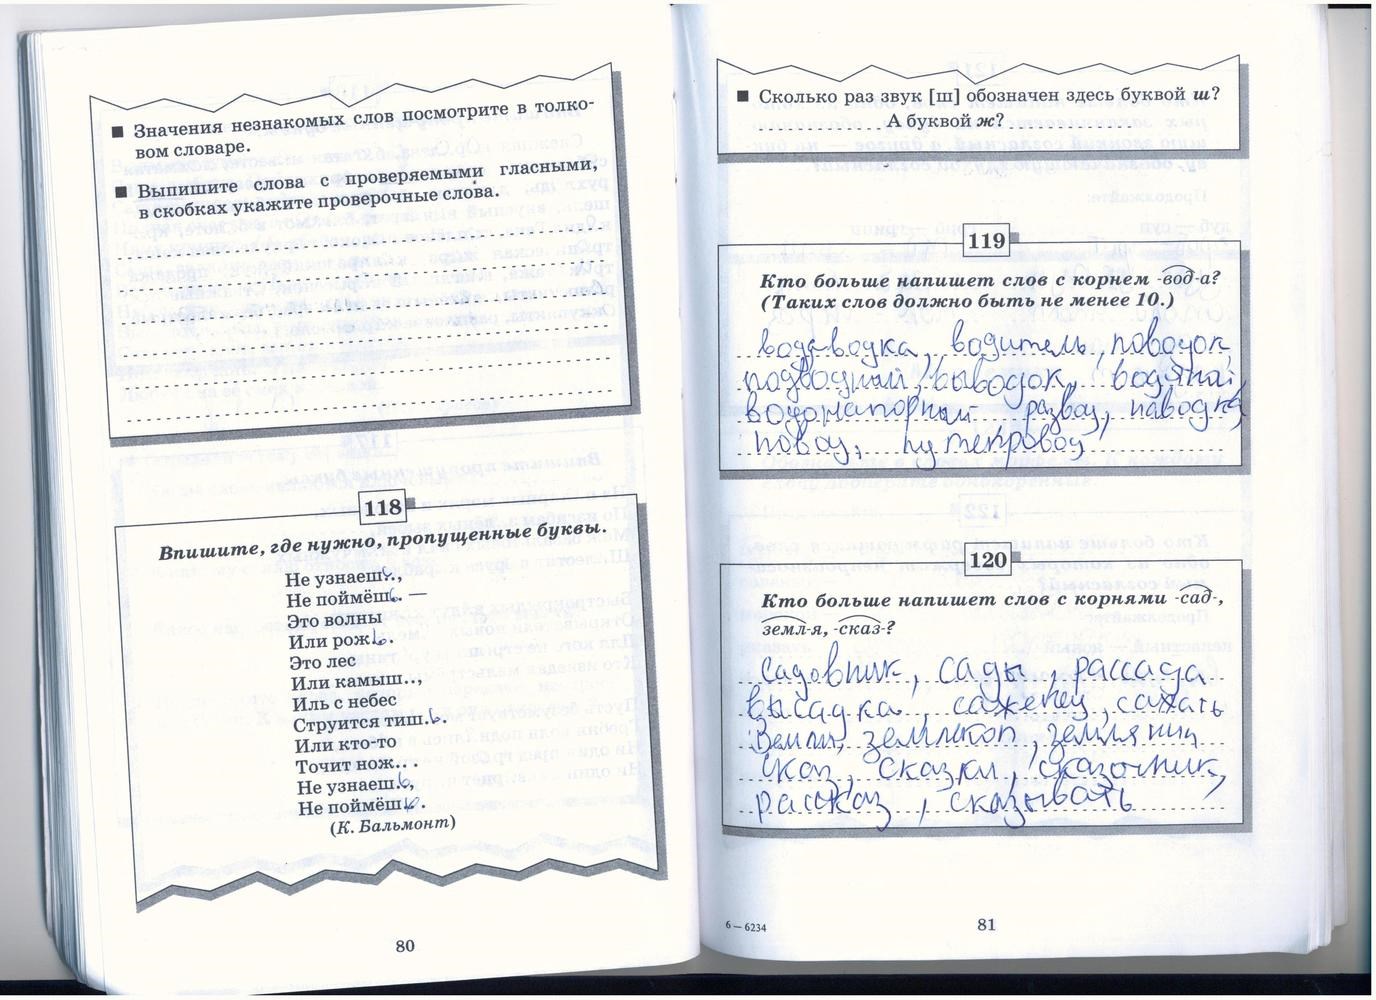 ■ Значения незнакомых слов посмотрите в толко-
вом словаре.
■ Выпишите слова с проверяемыми гласными,
в скобках укажите проверочные слова.
118
Впишите, где нужно, пропущенные буквы.
Не узнаешь.,
Не поймёшь. —
Это волны
Или рожь.
Это лес
Или камыш..,
Иль с небес
Струится тиш.ь.
Или кто-то
Точит нож...
Не узнаеш.ь,
Не поймёшь.
(К. Бальмонт)
80
■ Сколько раз звук [ш] обозначен здесь буквой ш?
А буквой ж?
119
Кто больше напишет слов с корнем -вод-а?
(Таких слов должно быть не менее 10.)
вода водка, водитель, поводок
подводный, выводок, водяной,
водонапорный развод, наводка
повод, путепровод
120
Кто больше напишет слов с корнями -сад-,
земл-я, -сказ-?
садовник, сады, рассада
высадка, саженец, сажать
Земли, землекоп, земляник
сказ, сказки, сказочник,
рассказ, сказывать
6 — 6234
81